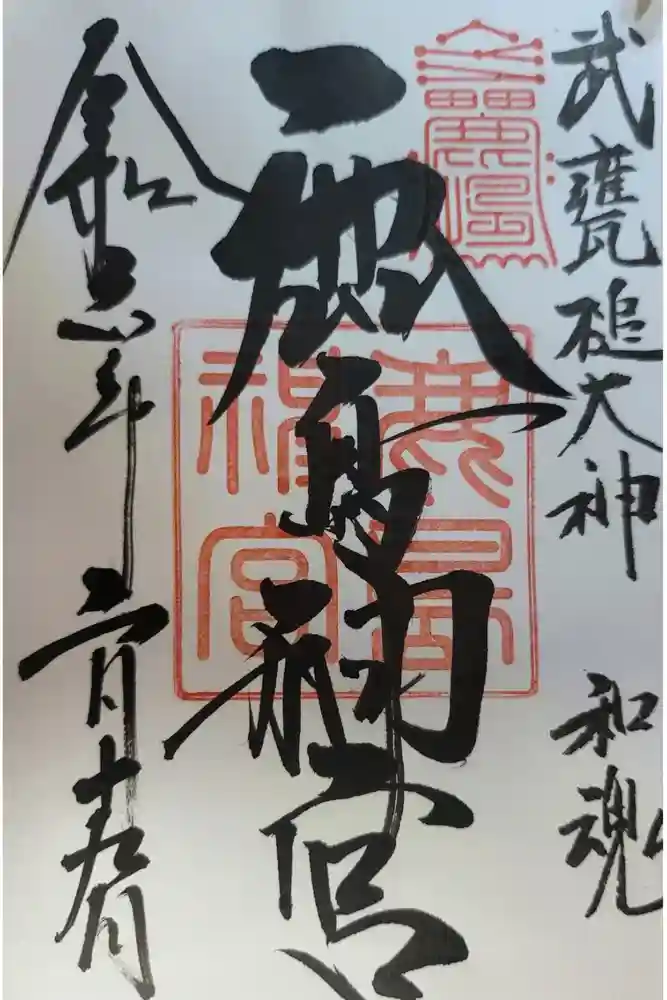 武甕槌大神 和魂
鹿島神宮
令和 年二月十九日
鹿島
神宮